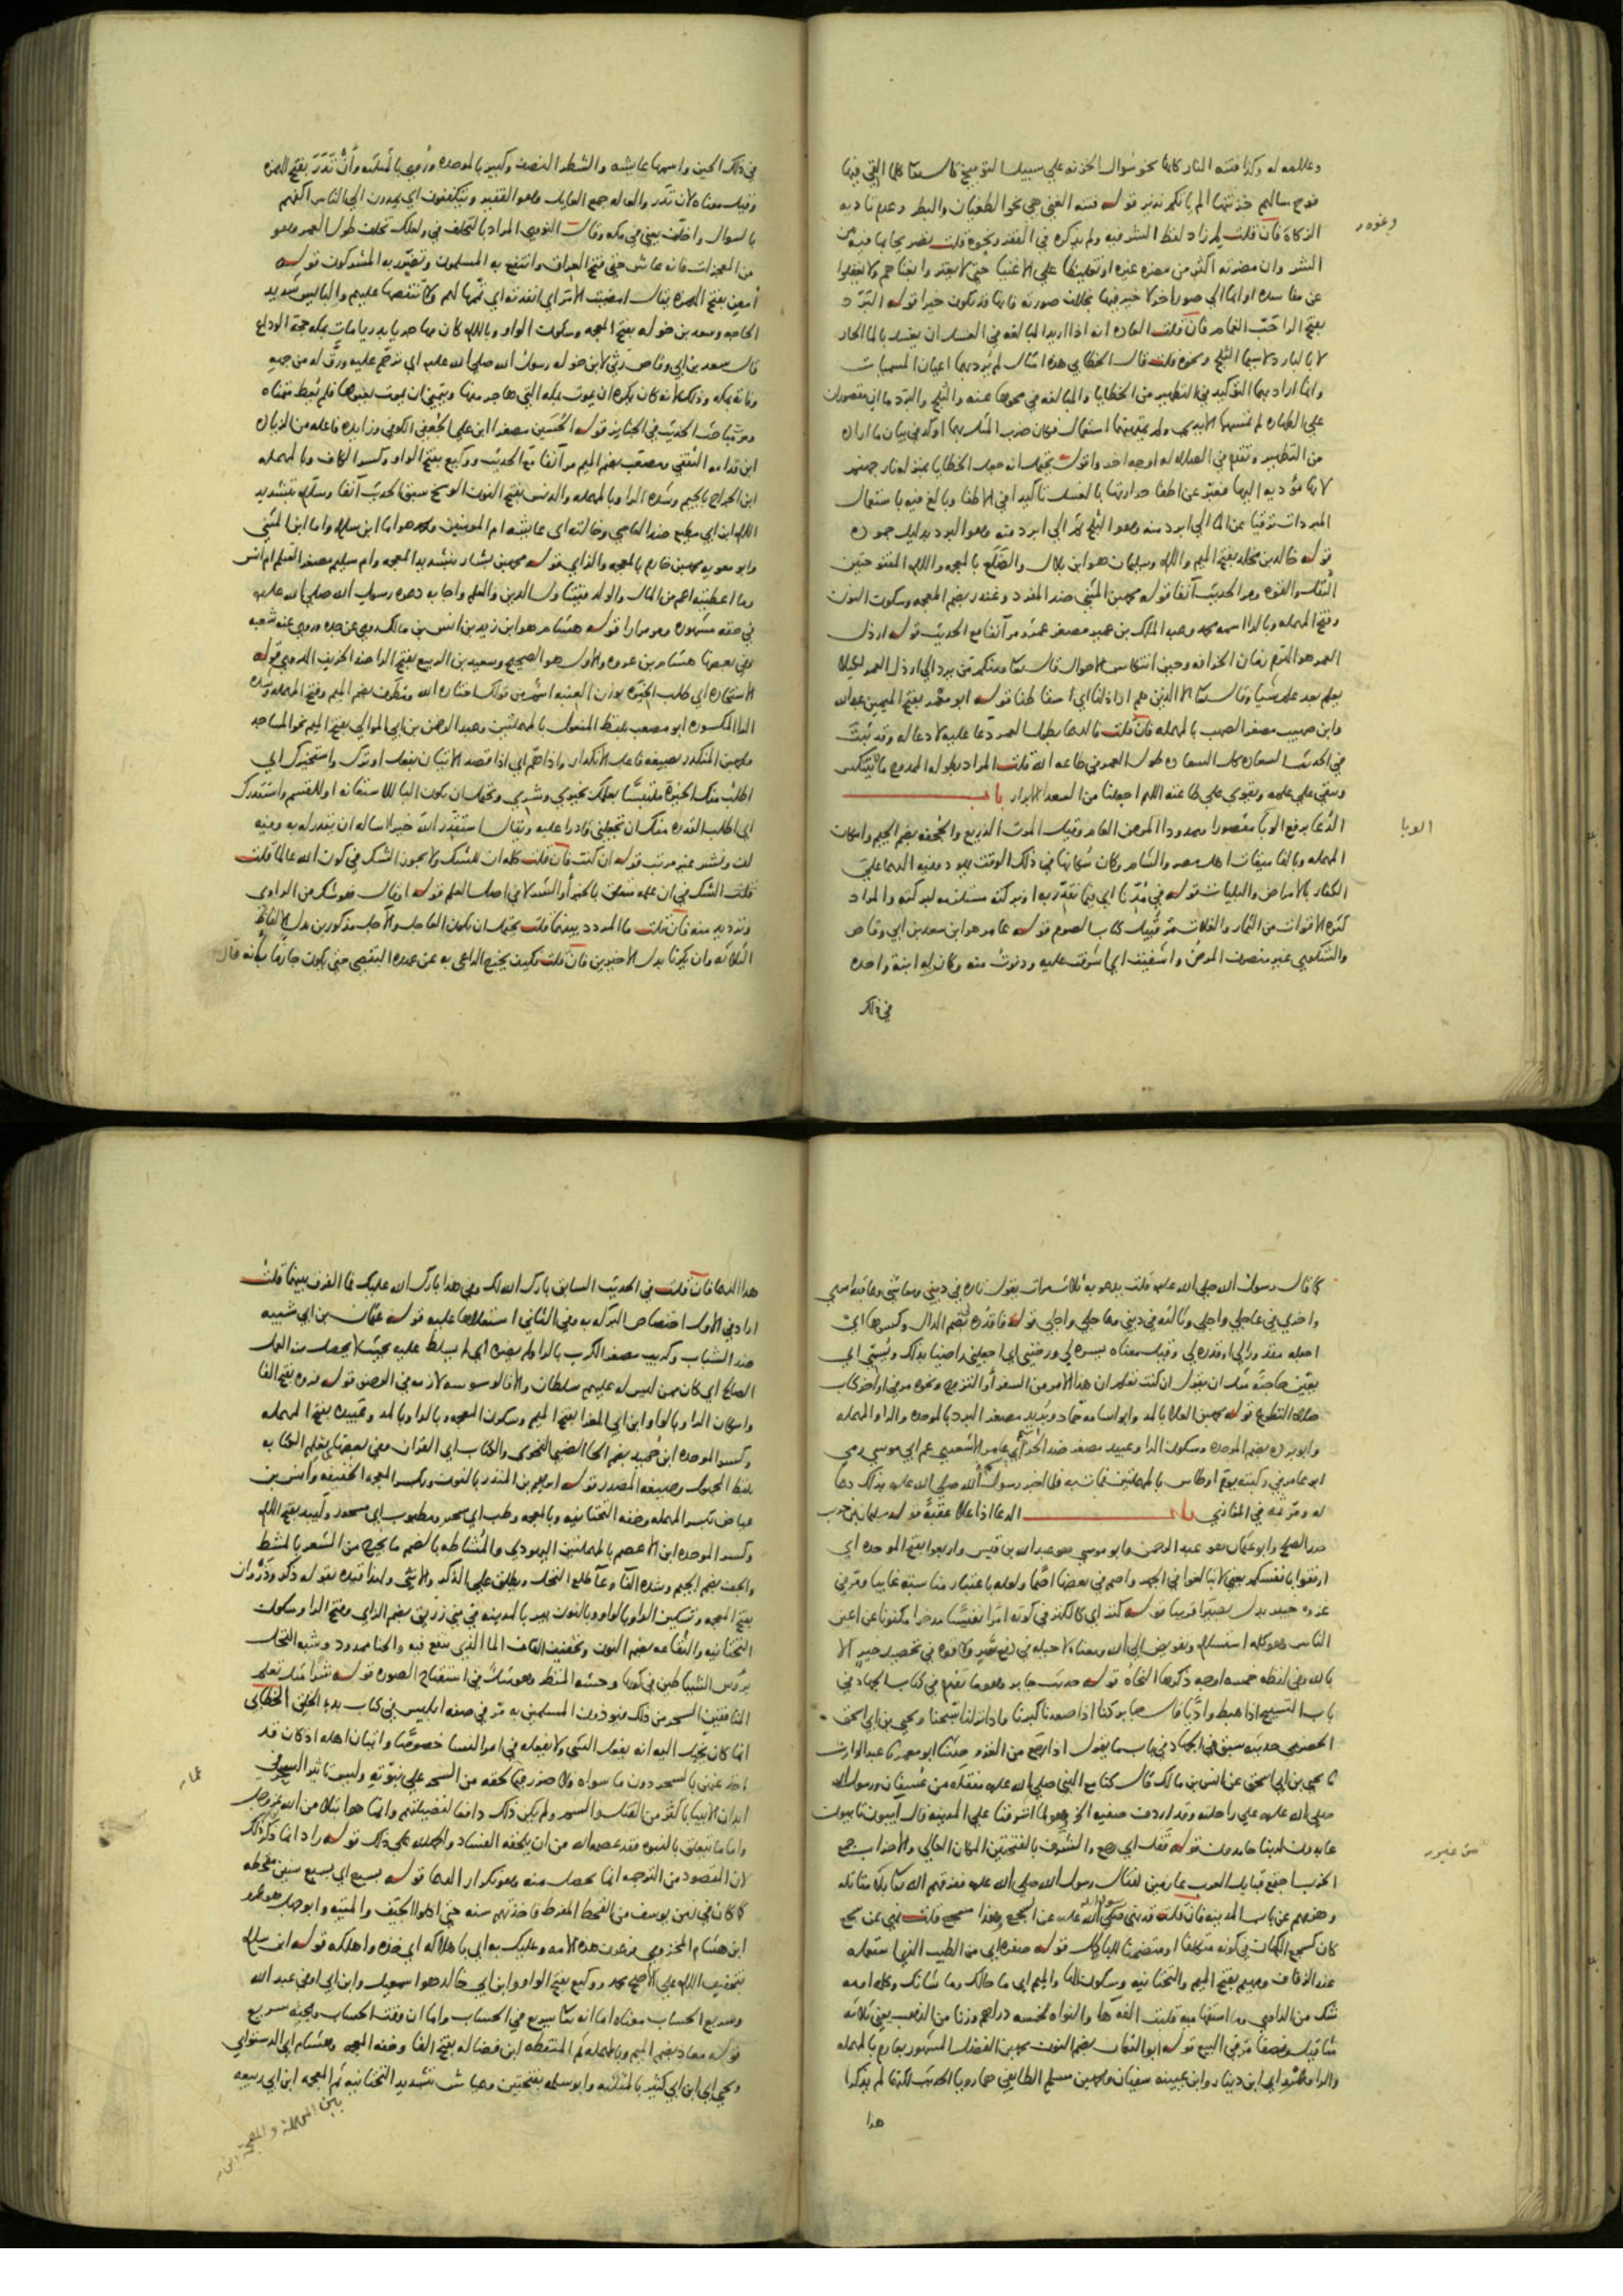 وعلله له وكذا فتنه النار كانها نحو سوال الخزنه علي سبيل التوبيخ قال تعا كلما القي فيها
فوج سالهم خزنتها الم ياتكم نذير قوله فتنه الغني هي نحو الطغيان والبطر وعدم تاديه
الزكاة فان قلت لم زاد لفظ الشر فيه ولم يذكره في الفقر ونحوه قلت تصريحا بما فيه من
الشر وان مضرته اكثر من مضره غيره او تغليظا علي الاغنيا حتي لا يغتروا بغناهم ولا يغفلوا
عن مفاسده او ايما الي صور اخر لا خير فيها بخلاف صورته فانها قد تكون خيرا قوله البرد
بفتح الرا حب الغمام فان قلت العاده انه اذا اريد المبالغه في الغسل ان يغسل بالما الحار
لا بالبارد لا سيما الثلج ونحوه قلت قال الخطابي هذه امثال لم يرد بها اعيان المسميات
وانما اراد بها التوكيد في التطهير من الخطايا والمبالغه في محوها عنه والثلج والبرد ماان مقصوران
علي الطهاره لم تمسهما الايدي ولم يمتهنهما استعمال فكان ضرب المثل بهما اوكد في بيان ما اراده
من التطهير وتقدم في الصلاه له اوجه اخر واقول يحتمل انه جعل الخطايا بمنزله نار جهنم
لانها مؤديه اليها فعبر عن اطفا حرارتها بالغسل تاكيدا في الاطفا وبالغ فيه باستعمال
المبردات ترقيا عن الما الي ابرد منه وهو الثلج ثم الي ابرد منه وهو البرد بدليل جموده
قوله خالد بن مخلد بفتح الميم واللام وسليمان هو ابن بلال والضلع بالمعجمه واللام المفتوحتين
الثقل والقوه ومر الحديث آنفا قوله محمد بن المثني ضد المفرد وغندر بضم المعجمه وسكون النون
وفتح المهمله وبالرا اسمه محمد وعبد الملك بن عمير مصغر عمر ومر آنفا مع الحديث قوله ارذل
العمر هو الهرم زمان الخرافه وحين انتكاس الاحوال قال تعا ومنكم من يرد الي ارذل العمر لكيلا
يعلم بعد علم شيا وقال تعا الا الذين هم اراذلنا اي اسقاطنا قوله ابو معمر بفتح الميمين عبد الله
وابن صهيب مصغر الصهب بالمهمله فان قلت فالدعا بطول العمر دعا عليه لا دعا له وقد ثبت
في الحديث السعاده كل السعاده طول العمر في طاعه الله قلت المراد بطوله الممدوح ما لا ينتكس
وبقي علي علمه وتقوي علي طاعته اللهم اجعلنا من السعدا الابرار باب
الدعا برفع الوبا مقصورا وممدودا المرض العام وقيل الموت الذريع والجحفه بضم الجيم واسكان
المهمله وبالفا ميقات اهل مصر والشام وكان سكانها في ذلك الوقت يهود وفيه الدعا علي
الكفار بالامراض والبليات قوله في مدنا اي فيما نقدر به اذ بركته مستلزمه لبركته والمراد
كثره الاقوات من الثمار والغلات مر قبيل كتاب الصوم قوله عامر هو ابن سعد بن ابي وقاص
والشكوي غير منصرف المرض واشفيت اي اشرفت عليه ودنوت منه وكان له ابنة واحده
في ذلك
وغوه
الوبا
في ذلك الحين واسمها عايشه والشطر النصف وكبير بالموحده وروي بالمثلثه وأن تذر بفتح الهمزه
وقيل معناه لان تذر والعاله جمع العايل وهو الفقير ويتكففون اي يمدون الي الناس اكفهم
بالسوال واخلف يعني في مكه وقال النووي المراد بالتخلف في ولعلك تخلف طول العمر وهو
من المعجزات فانه عاش حتي فتح العراق وانتفع به المسلمون وتضرر به المشركون قوله
أمض بفتح الهمزه يقال امضيت الامر اي انفذته اي تممها لهم ولا تنقصها عليهم والبايس شديد
الحاجه وسعد بن خوله بفتح المعجمه وسكون الواو وباللام كان مهاجريا بدريا مات بمكه حجة الوداع
قال سعد بن ابي وقاص رثي لابن خوله رسول الله صلي الله عليه اي ترحم عليه ورق له من جهه
وفاته بمكه وذلك لانه كان يكره ان يموت بمكه التي هاجر منها ويتمني ان يموت بغيرها فلم يعط متمناه
ومر مباحث الحديث في الجنايز قوله الحسين مصغرا ابن علي الجعفي الكوفي وزايده فاعله من الزياده
ابن قدامه الثقفي ومصعب بضم الميم مر آنفا مع الحديث ووكيع بفتح الواو وكسر الكاف وبالمهمله
ابن الجراح بالجيم وشده الرا وبالمهمله والدنس بفتح النون الوسخ سبق الحديث آنفا وسلام بتشديد
اللام ابن ابي مطيع ضد العاصي وخالته اي عايشه ام المومنين ومحمد هو اما ابن سلام واما ابن المثني
وابو معويه محمد بن خازم بالمعجمه والزاي قوله محمد بن بشار بتشديد المعجمه وام سليم مصغر السلم ام انس
وما اعطيته اعم من المال والولد فيتناول الدين والعلم واجابه دعوه رسول الله صلي الله عليه
في حقه مشهوره ومر مرارا قوله هشام هو ابن زيد بن انس بن مالك روي عن جده وروي عنه شعبه
وفي بعضها هشام بن عروه والاول هو الصحيح وسعيد بن الربيع بفتح الرا ضد الخريف الهروي قوله
الاستخاره اي طلب الخيره بوزن العنبه اسم من قولك اختاره الله ومطرف بضم الميم وفتح المهمله وشده
الرا المكسوره ابو مصعب بلفظ المفعول بالمهملتين وعبد الرحمن بن ابي الموالي بفتح الميم نحو المساجد
ومحمد بن المنكدر بصيغه فاعل الانكدار واذا هم اي اذا قصد الاتيان بفعل او ترك واستخيرك اي
اطلب منك الخيرة ملتبسا بعلمك بخيري وشري ويحتمل ان يكون البا للاستعانه او للقسم واستقدرك
اي اطلب القدره منك ان تجعلني قادرا عليه ويقال استقدر الله خيرا ساله ان يقدر له به وفيه
لف ونشر غير مرتب قوله ان كنت فان قلت كله ان للشك ولا يجوز الشك في كون الله عالما قلت
قلت الشك في ان علمه متعلق بالخير أو الشر لا في اصل العلم قوله او قال هو شك من الراوي
وترديد منه فان قلت ما المردد بينهما قلت يحتمل ان يكون العاجل والآجل مذكورين بدل الالفاظ
الثلاثه وان يكونا بدل الاخيرين فان قلت فكيف يخرج الداعي به عن عهده التفصي حتي يكون جازما بأنه قال
كما قال رسول الله صلي الله عليه قلت يدعو به ثلاث مرات يقول تاره في ديني ومعاشي وعاقبه امري
واخري في عاجلي واجلي وثالثه في ديني وعاجلي واجلي قوله فاقدره بضم الدال وكسرها اي
اجعله مقدورا لي او قدره لي وقيل معناه يسره لي ورضني اي اجعلني راضيا بذلك ويسمي اي
يعين حاجته مثل ان يقول ان كنت تعلم ان هذا الامر من السفر أو التزوج ونحوه مر في اواخر كتاب
صلاه التطوع قوله محمد بن العلا بالمد وابو اسامه حماد وبريد مصغر البرد بالموحده والرا والمهمله
وابو برده بضم الموحده وسكون الرا وعبيد مصغر ضد الحر اسم ابي عامر الاشعري عم ابي موسي رمي
ابو عامر في ركبته يوم اوطاس بالمهملتين فمات به فلما اخبر رسول الله صلي الله عليه بذلك دعا
له ومر تمه في المغازي باب الدعا اذا علا عقبة قوله سليمان بن حرب
ضد الصلح وابو عثمان هو عبد الرحمن وابو موسي هو عبد الله بن قيس واربعوا بفتح الموحده اي
ارفقوا بانفسكم يعني لا تبالغوا في الجهر واصم في بعضها اصما ولعله باعتبار مناسبته غايبا ومر في
غزوه خيبر بدل بصيرا قريبا قوله كنز اي كالكنز في كونه امرا نفيسا مدخرا مكنونا عن اعين
الناس وهو كله استسلام وتفويض الي الله ومعناه لا حيله في دفع شر ولا قوه في تحصيل خير الا
بالله وفي لفظه خمسه اوجه ذكرها النحاه قوله حديث جابر وهو ما تقدم في كتاب الجهاد في
باب التسبيح اذا هبط واديا قال جابر كنا اذا صعدنا كبرنا واذا نزلنا سبحنا ويحيي بن ابي اسحق
الحضرمي حديثه سبق في الجهاد في باب ما يقول اذا رجع من الغزو حدثنا ابو معمر ثنا عبد الوارث
ثنا يحيي بن ابي اسحق عن انس بن مالك قال كنا مع النبي صلي الله عليه مقفله من عسفان ورسول الله
صلي الله عليه علي راحلته وقد اردف صفيه الخ ولما اشرفنا علي المدينه قال آيبون تايبون
عابدون لربنا حامدون قوله قفل اي رجع والشرف بالفتحتين المكان العالي والاحزاب جمع
الحزب اجمع قبايل العرب عازمين لقتال رسول الله صلي الله عليه ففرقهم الله تعا بلا مقاتله
وهزمهم عن باب المدينه فان قلت قد نهي رسول الله صلي الله عليه عن السجع وهذا سجع قلت نهي عن سجع
كان كسجع الكهان في كونه متكلفا او متضمنا للباطل قوله صفره اي من الطيب الذي استعمله
عند الزفاف ومهيم بفتح الميم والتحتانيه وسكون الها والميم اي ما حالك وما شانك وكله اومه
شك من الراوي وما استفهاميه قلبت الفه ها والنواه خمسه دراهم وزنا من الذهب يعني ثلاثه
مثاقيل ونصفا مر في البيع قوله ابو النعمان بضم النون محمد بن الفضل المشهور بعارم بالمهمله
والرا وعمرو اي ابن دينار وابن عيينه سفيان ومحمد بن مسلم الطايفي هما رويا الحديث لكنهما لم يذكرا
هذا
هذا الدعا فان قلت في الحديث السابق بارك الله لك وفي هذا بارك الله عليك فما الفرق بينهما قلت
اراد في الاول اختصاص البركه به وفي الثاني استعلاها عليه قوله عثمان بن ابي شيبه
ضد الشباب وكريب مصغر الكرب بالرا ولم يضره اي لم يسلط عليه بحيث لا يحصل منه العمل
الصالح اي كان ممن ليس له عليهم سلطان والا فالوسوسه لازمه في الوضو قوله فروه بفتح الفا
واسكان الرا وبالواو ابن ابي المغرا بفتح الميم وسكون المعجمه وبالرا وبالمد وعبيده بفتح المهمله
وكسر الموحده ابن حميد بضم الحا الضبي النحوي والكتاب اي القران وفي بعضها يعلم الكتابه
بلفظ المجهول وصيغه المصدر قوله ابرهيم بن المنذر بالنون وكسر المعجمه الخفيفه وانس بن
عياض بكسر المهمله وخفه التحتانيه وبالمعجمه وطب اي سحر ومطبوب اي مسحور ولبيد بفتح اللام
وكسر الموحده ابن الاعصم بالمهملتين اليهودي والمشاطه بالضم ما يخرج من الشعر بالمشط
والجف بضم الجيم وشده الفا وعا طلع النخل ويطلق علي الذكر والانثي ولهذا قيده بقوله ذكر وذروان
بفتح المعجمه وتسكين الرا وبالواو وبالنون بير بالمدينه في بني زريق بضم الزاي وفتح الرا وسكون
التحتانيه والنقاعه بضم النون وتخفيف القاف الما الذي ينقع فيه والحنا ممدود وشبه النخل
برؤس الشياطين في كونها وحشه المنظر وهو مثل في استقباح الصوره قوله شرا مثل تعلم
المنافقين السحر من ذلك فيؤذون المسلمين به مر في صفه ابليس في كتاب بدء الخلق الخطابي
انما كان يخيل اليه انه يفعل الشي ولا يفعله في امر النسا خصوصا واتيان اهله اذ كان قد
اخذ عنهن بالسحر دون ما سواه ولا ضرر فيما لحقه من السحر علي نبوته وليس تاثير السحر في
ابدان الانبيا باكثر من القتل والسم ولم يكن ذلك دافعا لفضيلتهم وانما هو ابتلا من الله عز وجل
واما ما يتعلق بالنبوه فقد عصمه الله من ان يلحقه الفساد والحمدلله علي ذلك قوله زاد انما ذكر ذلك
لان المقصود من الترجمه انما يحصل منه وهو تكرار الدعا قوله بسبع اي بسبع سنين مقحطه
كما كان في زمن يوسف من القحط المفرط فاخذتهم سنه حتي اكلوا الجيف والميته وابو جهل هو عمرو
ابن هشام المخزومي فرعون هذه الامه وعليك به اي باهلاكه اي خذه واهلكه قوله ابن سلام
بتخفيف اللام علي الاصح محمد ووكيع بفتح الواو وابن ابي خالد هو اسمعيل وابن ابي اوفي عبد الله
وسريع الحساب معناه اما انه تعا سريع في الحساب واما ان وقت الحساب مجيئه سريع
قوله معاذ بضم الميم وبالمهمله ثم المنقطه ابن فضاله بفتح الفا وخفه المعجمه وهشام اي الدستوائي
ويحيي اي ابن ابي كثير بالمثلثه وابو سلمه بفتحتين وعياش بتشديد التحتانيه ثم المعجمه ابن ابي ربيعه